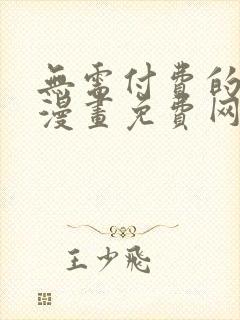 無需付費的
漫畫免費网
王少飛